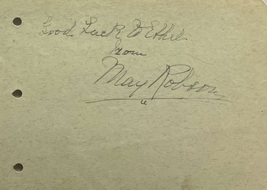 Good Luck to Ethel
from
May Robson